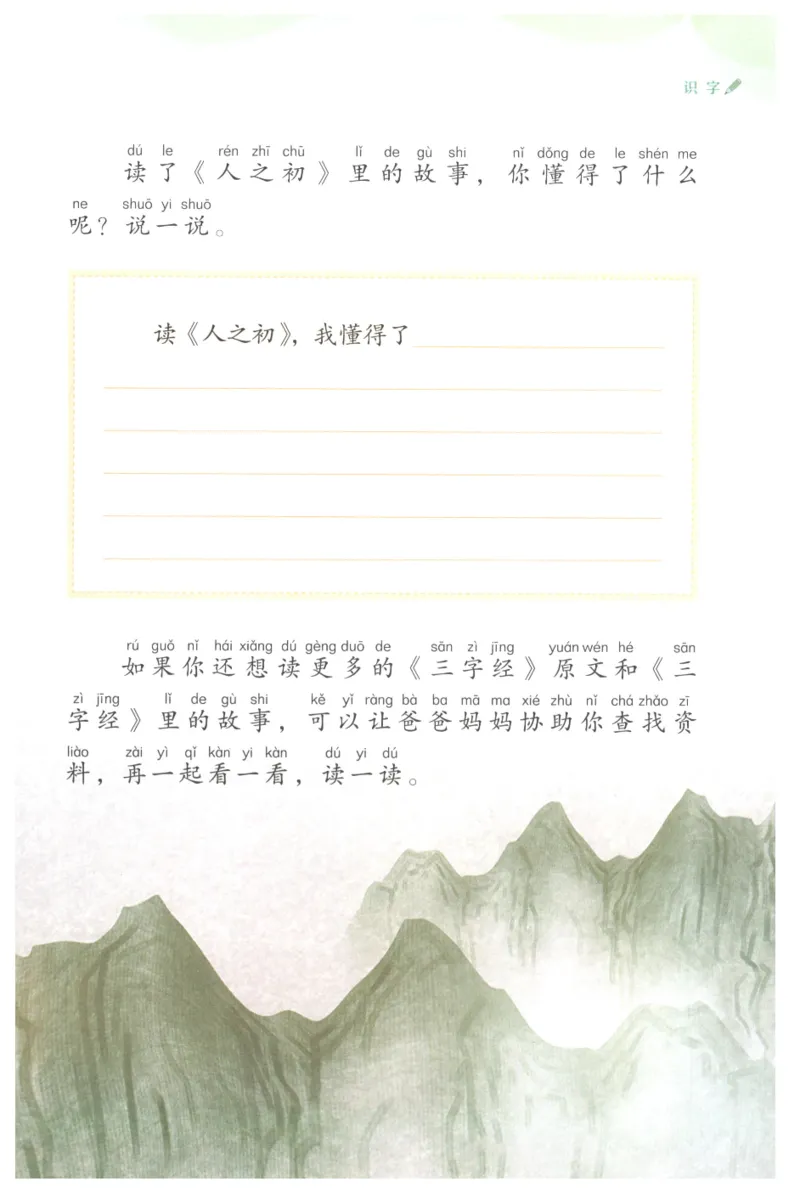 识字
dú le rén zhī chū lǐ de gù shi nǐ dǒng de le shén me
读了《人之初》里的故事，你懂得了什么
ne shuō yi shuō
呢？说一说。
读《人之初》，我懂得了
rú guǒ nǐ hái xiǎng dú gèng duō de sān zì jīng yuán wén hé sān
如果你还想读更多的《三字经》原文和《三
zì jīng lǐ de gù shi kě yǐ ràng bà ba mā ma xié zhù nǐ chá zhǎo zī
字经》里的故事，可以让爸爸妈妈协助你查找资
liào zài yì qǐ kàn yi kàn dú yi dú
料，再一起看一看，读一读。